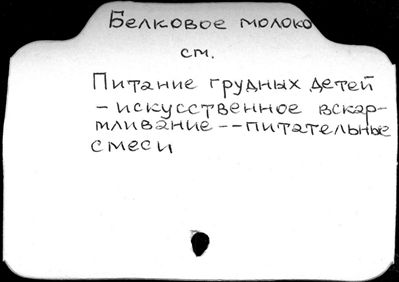 Белковое молоко
см.
Питание грудных детей
- искусственное вскар-
мливание -- питательные
смеси